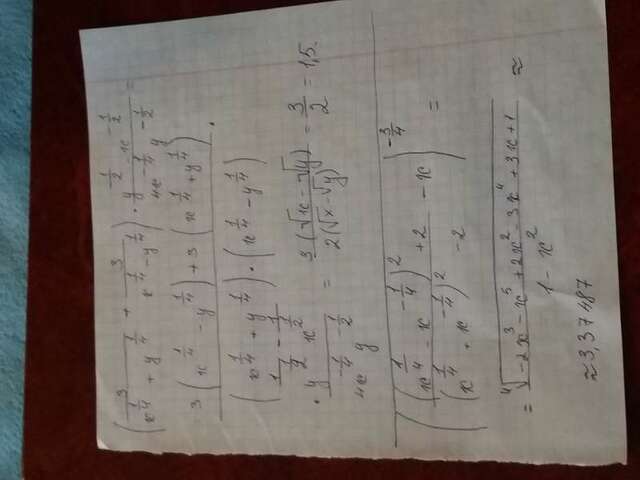 (3/(x^(1/4) + y^(1/4)) + 3/(x^(1/4) - y^(1/4))) · (y^(-1/2) - x^(-1/2))/(4x^(-1/4) y^(-1/2)) =
(3(x^(1/4) - y^(1/4)) + 3(x^(1/4) + y^(1/4)))/((x^(1/4) + y^(1/4)) · (x^(1/4) - y^(1/4))) ·
· (1/y^(1/2) - 1/x^(1/2))/(4x^(-1/4) y^(-1/2)) = 3(√x - √y)/2(√x - √y) = 3/2 = 1,5.
(((x^(1/4) - x^(-1/4))^2 + 2)/((x^(1/4) + x^(-1/4))^2 - 2) - x)^(-3/4) =
= ∜(-2x^3 - x^5 + 2x^2 - 3x^4 + 3x + 1)/(1 - x^2) ≈
≈ 3,37487